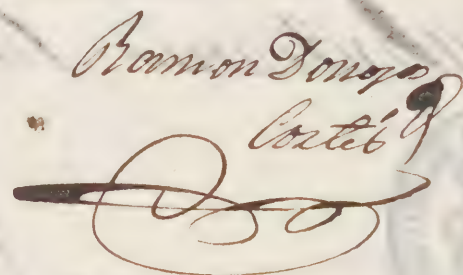 Ramon Donoso
Cortés